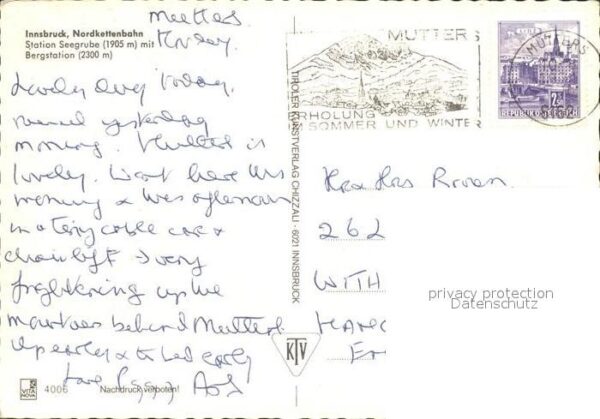 Innsbruck, Nordkettenbahn
Station Seegrube (1905 m) mit
Bergstation (2300 m)
Mutters
Friday.
Lovely day today.
yesterday
morning. Mutters is
lovely. Went here this
morning & this afternoon
in a terry cable car &
chair lift → very
frightening up the
mountains behind Mutters.
Up early & to bed early
Love Peggy
4006 Nachdruck verboten!
VITA NOVA
TIROLER KUNSTVERLAG CHIZZALI · 6021 INNSBRUCK
KTV
MUTTERS
ERHOLUNG
SOMMER UND WINTER
MUTTERS
2.20
REPUBLIK ÖSTERREICH
262
WITH
privacy protection
Datenschutz